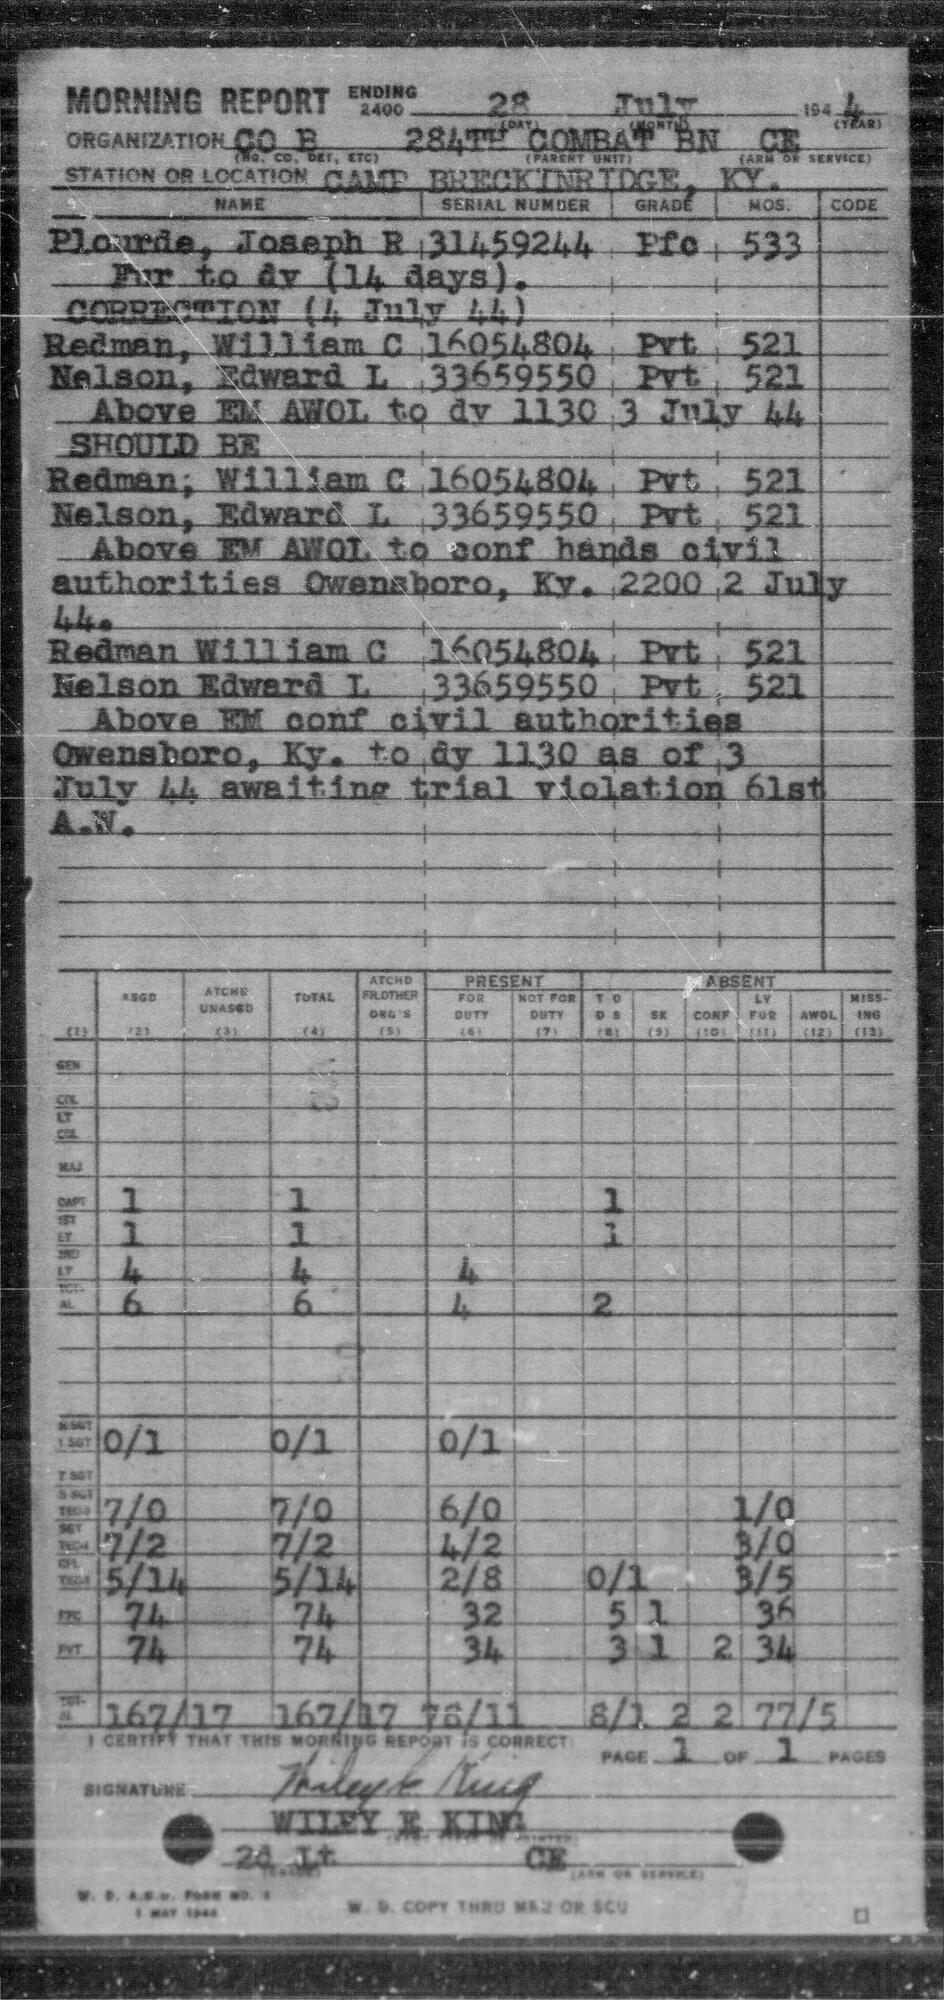 MORNING REPORT ENDING 2400 28 July 1944
(DAY) (MONTH) (YEAR)
ORGANIZATION CO B 284TH COMBAT BN CE
(HQ. CO. DET, ETC) (PARENT UNIT) (ARM OR SERVICE)
STATION OR LOCATION CAMP BRECKINRIDGE, KY.
NAME SERIAL NUMBER GRADE MOS. CODE
Plourde, Joseph R 31459244 Pfc 533
Fur to dy (14 days).
CORRECTION (4 July 44)
Redman, William C 16054804 Pvt 521
Nelson, Edward L 33659550 Pvt 521
Above EM AWOL to dy 1130 3 July 44
SHOULD BE
Redman; William C 16054804 Pvt 521
Nelson, Edward L 33659550 Pvt 521
Above EM AWOL to conf hands civil
authorities Owensboro, Ky. 2200 2 July
44.
Redman William C 16054804 Pvt 521
Nelson Edward L 33659550 Pvt 521
Above EM conf civil authorities
Owensboro, Ky. to dy 1130 as of 3
July 44 awaiting trial violation 61st
A.W.
PRESENT ABSENT
ASGD ATCHD UNASGD TOTAL ATCHD FR.OTHER ORG'S FOR DUTY NOT FOR DUTY T D D S SK CONF LV FUR AWOL MISS-ING
(1) (2) (3) (4) (5) (6) (7) (8) (9) (10) (11) (12) (13)
GEN
COL
LT COL
MAJ
CAPT 1 1 1
1ST LT 1 1 1
2ND LT 4 4 4
TOT-AL 6 6 4 2
M SGT 1 SGT 0/1 0/1 0/1
T SGT
S SGT TEC-3 7/0 7/0 6/0 1/0
SGT TEC-4 7/2 7/2 4/2 3/0
CPL TEC-5 5/14 5/14 2/8 0/1 3/5
PFC 74 74 32 5 1 36
PVT 74 74 34 3 1 2 34
TOT-AL 167/17 167/17 78/11 8/1 2 2 77/5
I CERTIFY THAT THIS MORNING REPORT IS CORRECT:
PAGE 1 OF 1 PAGES
SIGNATURE Wiley E King
WILEY E KING
2d Lt CE
(GRADE) (ARM OR SERVICE)
W. D. A.G.O. FORM NO. 1
1 MAY 1944
W. D. COPY THRU MRU OR SCU